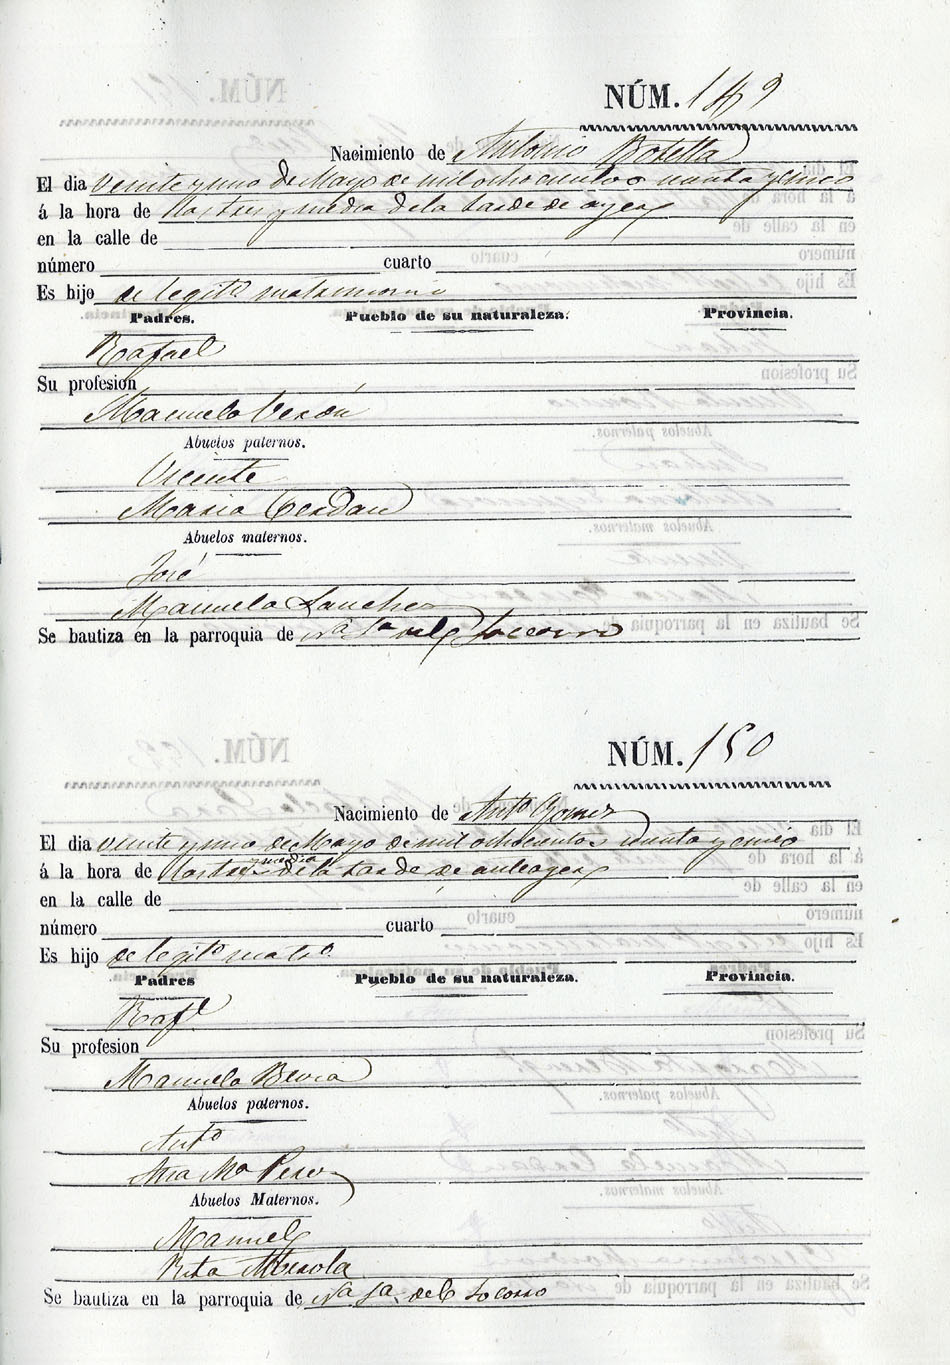 NÚM. 149
Nacimiento de Antonio Botella
El dia veinte y uno de Mayo de mil ochocientos y cinco
á la hora de las tres y media de la tarde de ayer
en la calle de
número cuarto
Es hijo de legit.º matrimonio
Padres. Pueblo de su naturaleza. Provincia.
Rafael
Su profesion
Manuela
Abuelos paternos.
Vicente
Maria Cerdan
Abuelos maternos.
José
Manuela Sanchez
Se bautiza en la parroquia de N.ª S.ª del Socorro
NÚM. 150
Nacimiento de Ant.º Gomez
El dia veinte y uno de Mayo de mil ochocientos y cinco
á la hora de las tres y media de la tarde de anteayer
en la calle de
número cuarto
Es hijo de legit.º matr.º
Padres Pueblo de su naturaleza. Provincia.
Raf.l
Su profesion
Manuela
Abuelos paternos.
Ant.º
M.ª
Abuelos Maternos.
Manuel
Rita
Se bautiza en la parroquia de N.ª S.ª del Socorro